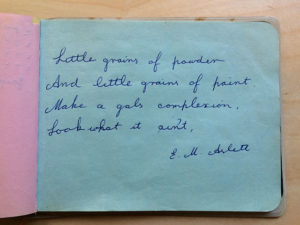 Little grains of powder
And little grains of paint
Make a gals complexion,
Look what it ain't,
E. M. Arlett